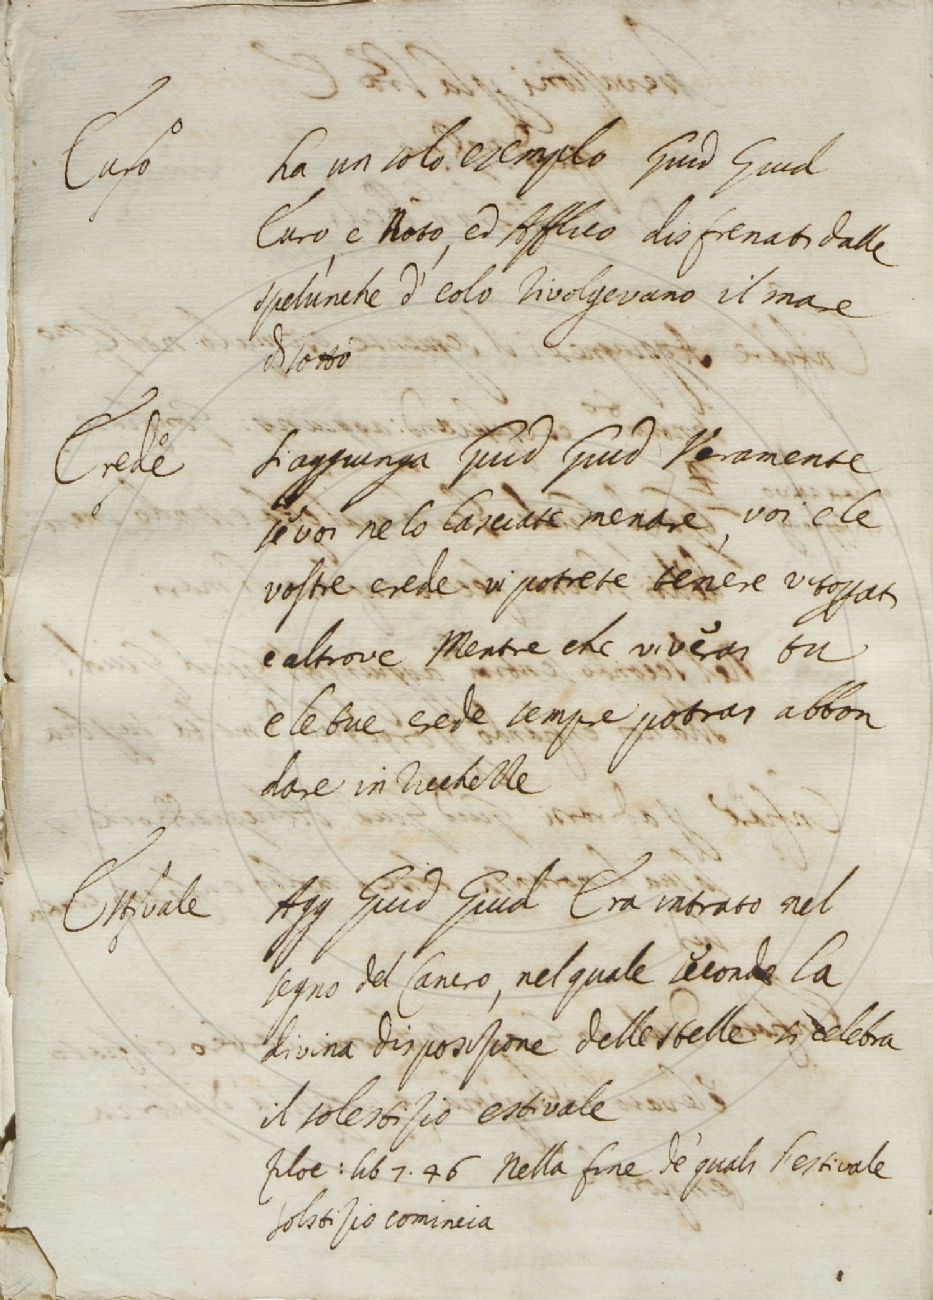 Euro ha un solo esemplo Guid Giud
Euro, e Noto, ed Affrico disfrenati dalle
spelunche d'eolo rivolgevano il mare
di sotto
Erede Si aggiunga Guid Giud Veramente
se voi ne lo lasciate menare, voi e le
vostre erede vi potrete tenere
e altrove Mentre che viverai tu
e le tue erede sempre potrai abbon
dare in ricchezze
Estivale Agg Guid Giud Era intrato nel
segno del Cancro, nel quale secondo la
divina disposizione delle stelle si celebra
il solestizio estivale
Filoc: lib 7. 46 Nella fine de' quali l'estivale
solstizio comincia